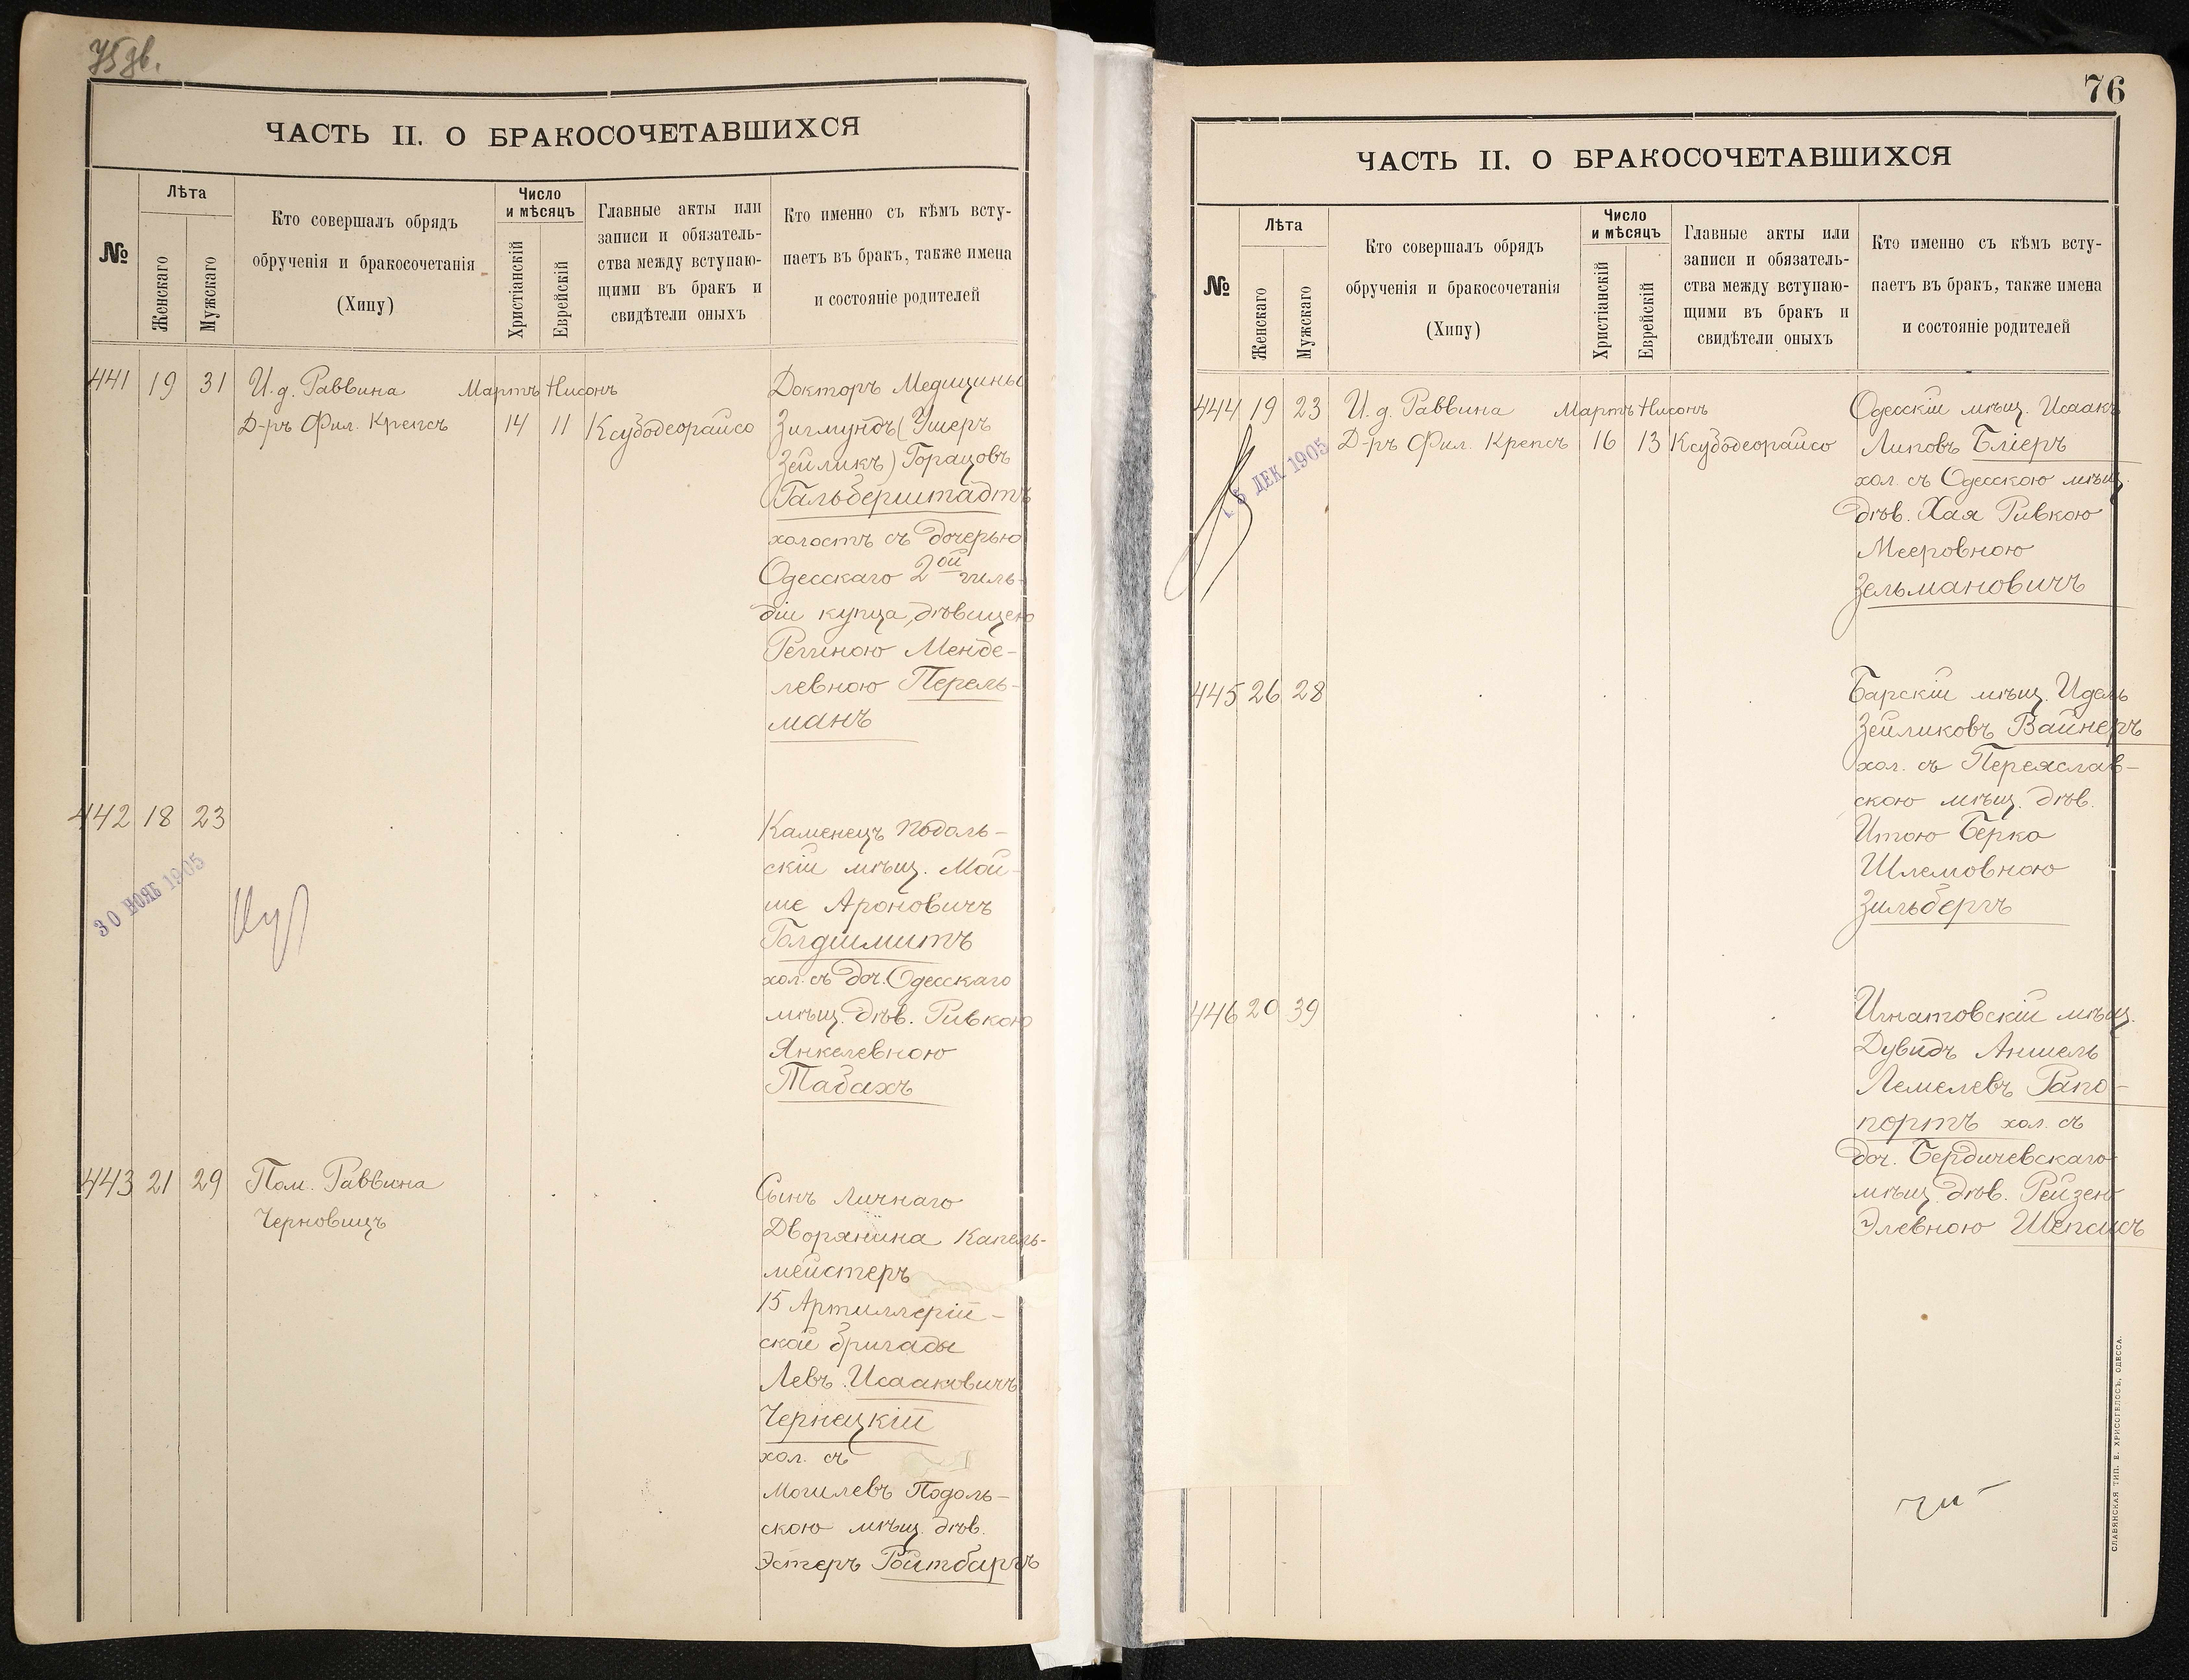 75 об.
ЧАСТЬ II. О БРАКОСОЧЕТАВШИХСЯ
№
Лѣта
Женскаго
Мужскаго
Кто совершалъ обрядъ
обрученія и бракосочетанія
(Хипу)
Число
и мѣсяцъ
Христіанскій
Еврейскій
Главные акты или
записи и обязатель-
ства между вступаю-
щими въ бракъ и
свидѣтели оныхъ
Кто именно съ кѣмъ всту-
паетъ въ бракъ, также имена
и состояніе родителей
441 19 31 И. д. Раввина Мартъ Нисонъ Докторъ Медицины
Д-ръ Фил. Крепсъ 14 11 Ксубодеорайсо Зигмундъ (Ушеръ
Зейликъ) Горацовъ
Гальберштадтъ
холостъ съ дочерью
Одесскаго 2ой гиль-
діи купца, дѣвицею
Региною Менде-
левною Перель-
манъ
442 18 23 Каменецъ Подоль-
скій мѣщ. Мой-
ше Ароновичъ
Голдшмитъ
хол. съ доч. Одесскаго
мѣщ. дѣв. Ривкою
Янкелевною
Табахъ
30 НОЯБ 1905
443 21 29 Пом. Раввина Сынъ Личнаго
Черновицъ Дворянина Капель-
мейстеръ
15 Артиллерій-
ской бригады
Левъ Исааковичъ
Чернецкій
хол. съ
Могилевъ Подоль-
скою мѣщ. дѣв.
Эстеръ Ройтбургъ
76
ЧАСТЬ II. О БРАКОСОЧЕТАВШИХСЯ
№
Лѣта
Женскаго
Мужскаго
Кто совершалъ обрядъ
обрученія и бракосочетанія
(Хипу)
Число
и мѣсяцъ
Христіанскій
Еврейскій
Главные акты или
записи и обязатель-
ства между вступаю-
щими въ бракъ и
свидѣтели оныхъ
Кто именно съ кѣмъ всту-
паетъ въ бракъ, также имена
и состояніе родителей
444 19 23 И. д. Раввина Мартъ Нисонъ Одесскій мѣщ. Исаакъ
Д-ръ Фил. Крепсъ 16 13 Ксубодеорайсо Липовъ Бліеръ
хол. съ Одесскою мѣщ.
дѣв. Хая Ривкою
Мееровною
Зельмановичъ
ДЕК 1905
445 26 28 Барскій мѣщ. Идель
Зейликовъ Вайнеръ
хол. съ Переяслав-
скою мѣщ. дѣв.
Итою Берко
Шлемовною
Зильбергъ
446 20 39 Игнатовскій мѣщ.
Дувидъ Аншель
Лемелевъ Рапо-
портъ хол. съ
доч. Бердичевскаго
мѣщ. дѣв. Рейзею
Элевною Шепсисъ
СЛАВЯНСКАЯ ТИП. Е. ХРИСОГЕЛОСЪ, ОДЕССА.